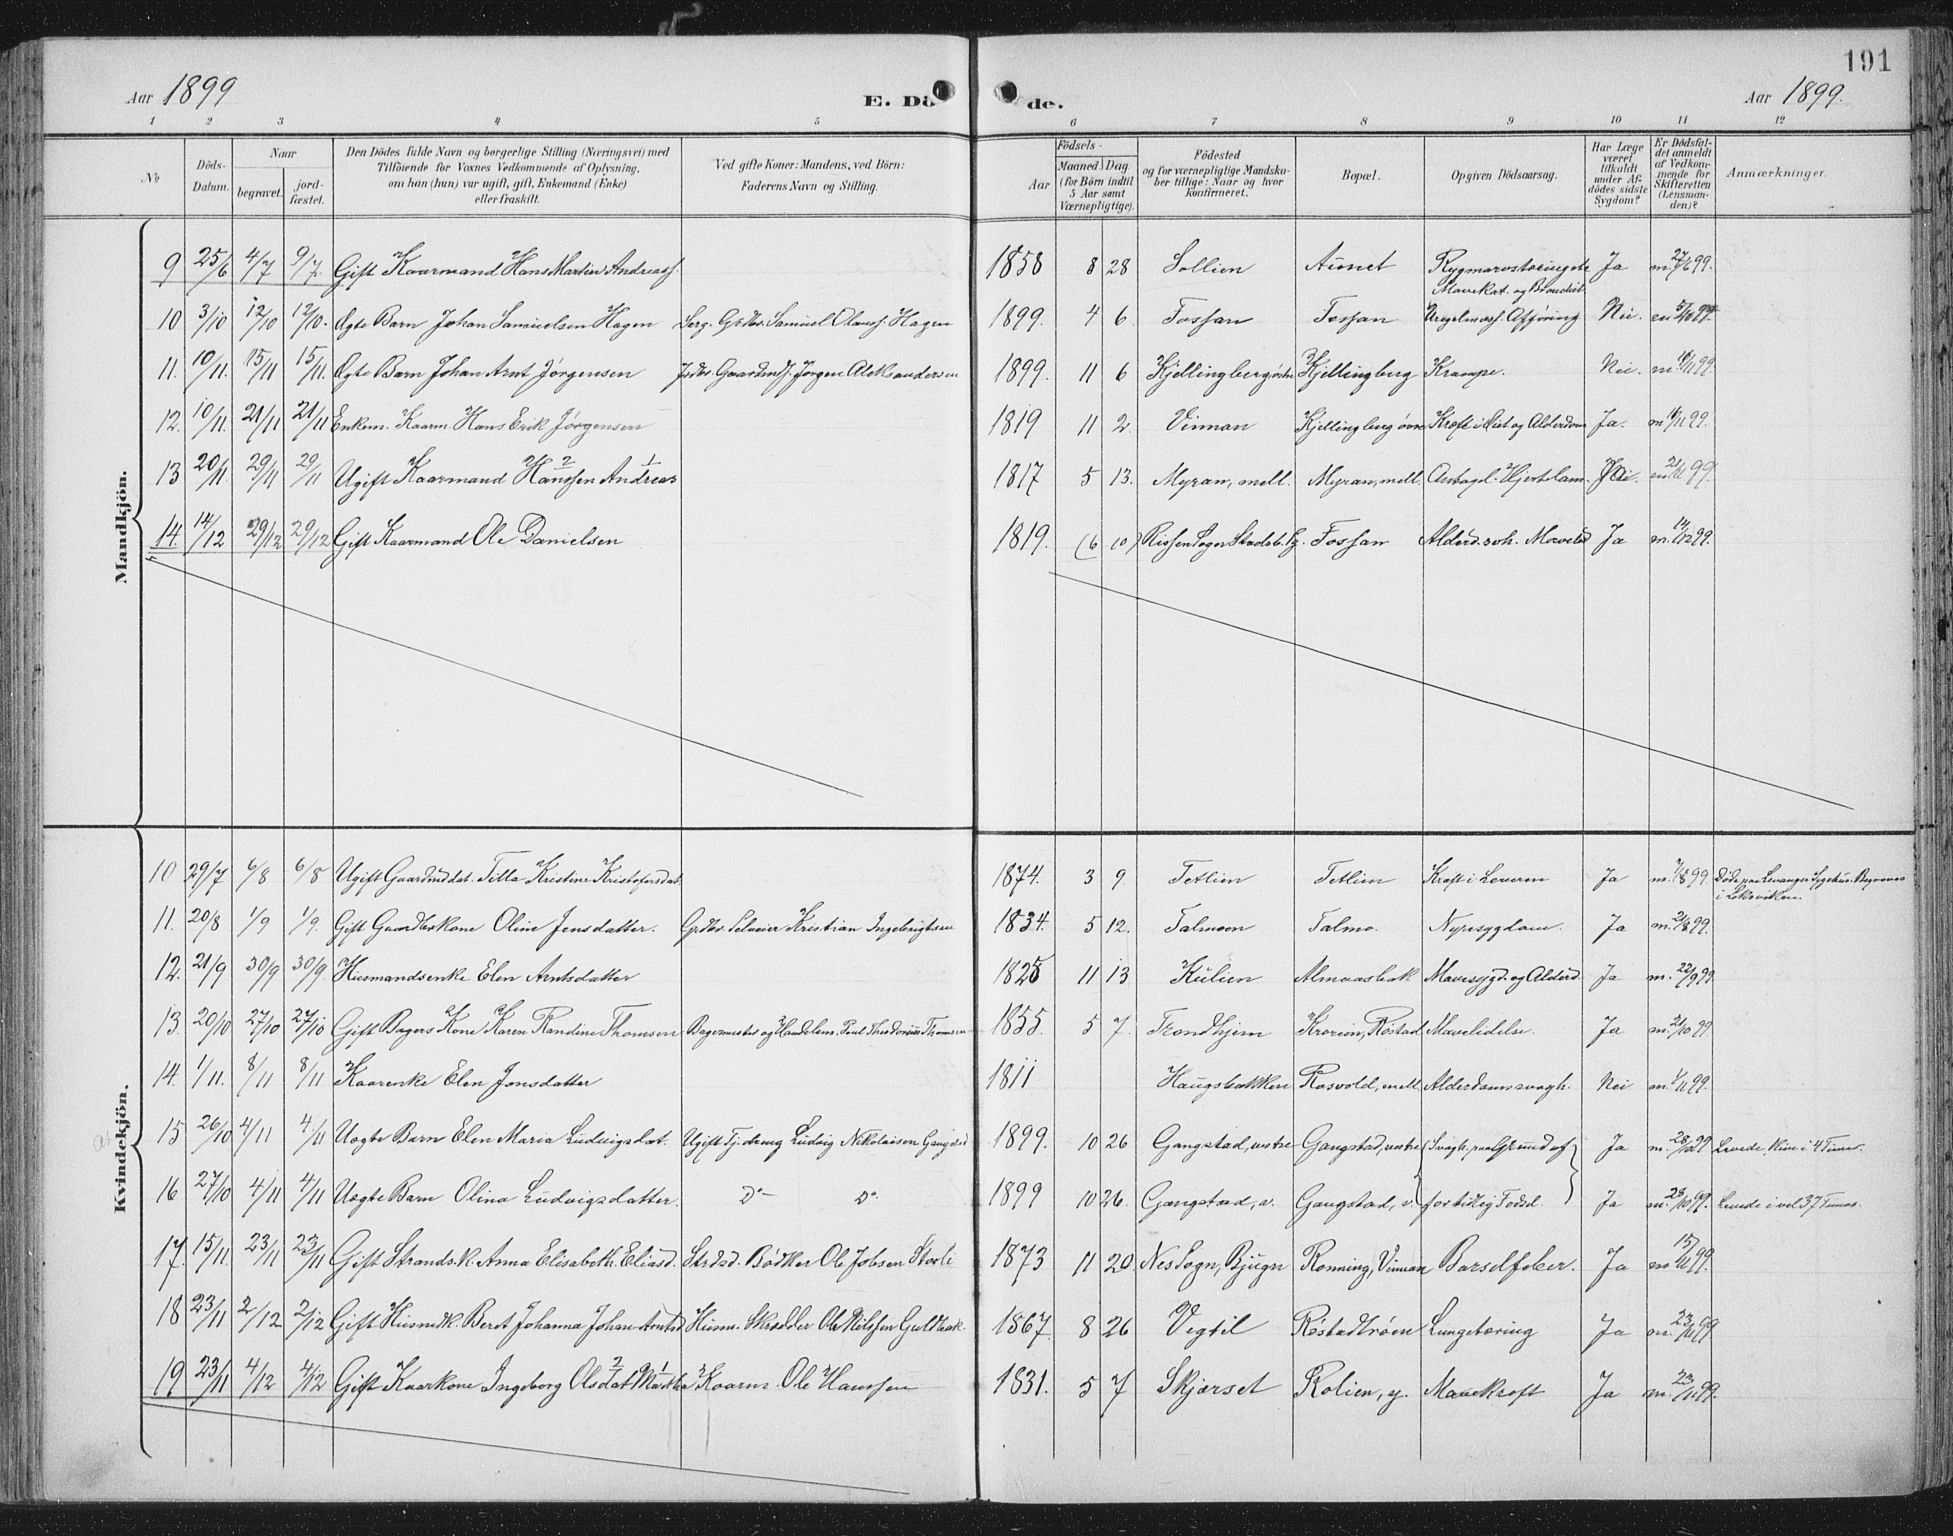 191
Aar 1899
E. Dö de.
Aar 1899.
1 2 3 4 5 6 7 8 9 10 11 12
No
Döds-Datum.
Naar
begravet.
jord-fæstet.
Den Dödes fulde Navn og borgerlige Stilling (Næringsvei) med
Tilföiende for Voxnes Vedkommende af Oplysning,
om han (hun) var ugift, gift, Enkemand (Enke)
eller fraskilt.
Ved gifte Koner: Mandens, ved Börn:
Faderens Navn og Stilling.
Födsels-
Aar
Maaned Dag
(for Börn indtil
5 Aar samt
Værnepligtige).
Födested
og for værnepligtige Mandska-
ber tillige: Naar og hvor
konfirmeret.
Bopæl.
Opgiven Dödsaarsag.
Har Læge
været
tilkaldt
under Af-
dödes sidste
Sygdom?
Er Dödsfal-
det anmeldt
af Vedkom-
mende for
Skifteretten
(Lensman-
den)?
Anmærkninger.
Mandkjön.
9 25/6 4/7 9/7. Gift Kaarmand Hans Martin Andreass. 1858 8 28 Sollien Aunet Rygmarvstæring etc Ja m. 27/6 99.
Mavekat. og Bronchit
10 3/10 12/10 12/10. Ægte Barn Johan Samuelsen Hagen Serg. Grdbr. Samuel Olauss. Hagen 1899. 4 6 Fossan Fossan Uregelmæss. Afføring Nei. 5/10 99.
11. 10/11. 15/11 15/11. Ægte Barn Johan Arnt Jørgensen Gaardmd. Jørgen Aleksandersen 1899. 11 6 Kjellingberg øvre Kjellingberg Krampe. Nei. m. 99.
12. 10/11. 21/11 21/11 Enkem. Kaarm. Hans Erik Jørgensen 1819 11 2 Vinnan Kjellingberg øvre Kræft i og Alderdom Ja. m. 99.
13 20/11. 29/11 29/11 Ugift Kaarmand Hanssen Andreas 1817 5 13. Myran, mell. Myran, mell. Antagel. Hjertelam. 99.
14. 14/12 29/12 29/12 Gift Kaarmand Ole Danielsen 1819. (6 10) Rissen Sogn Fossan Alderd.svh. Ja m. 14/12 99.
Kvindekjön.
10 29/7 6/8 6/8 Ugift Gaardmddat. Tilla Kristine Kristofersdat. 1874. 3 9. Tetlien Tetlien Kræft i Leveren Ja m. 1/8 99. Døde paa Levanger Sygehus. Begraves
i Leksviken.
11. 20/8 1/9 1/9. Gift Gaardbrkone Oline Jensdatter. Grdbr. Kristian Ingebrigtsen 1834. 5 12. Talmoen Talmo. Nyresygdom. Ja m. 21/8 99.
12. 21/9 30/9 30/9. Husmandsenke Elen Arntsdatter 1825 11 13 Kulien Almaasbak Mavesygd. og Alderd. Ja m. 22/9 99
13. 20/10 27/10 27/10 Gift Bagers Kone Karen Randine Thomsen Bagermester og Handelsm. Paul Theodorius Thomsen 1855. 5 7. Trondhjem Røstad Mavelidelse. Ja m. 21/10 99
14. 1/11. 8/11 8/11 Kaarenke Elen Jonsdatter 1811 Haugsbakken Rosvold, mell. Alderdomssvagh. Nei m. 1/11 99.
15 26/10 4/11 4/11 Uægte Barn Elen Maria Ludvigsdat. Ugift Tj.dreng Ludvig Nikolaisen Gangstad 1899. 10 26 Gangstad, vestre Gangstad, vestre Svagh. paa Grund af Ja m. 28/10 99 Levede kun i 4 Timer.
16 27/10 4/11 4/11 Uægte Barn Olina Ludvigsdatter. Do Do. 1899 10 26. Gangstad, v. Gangstad, v. for tidlig Fødsel. Ja m. 28/10 99. Levede i vel 37 Timer
17. 15/11. 23/11 23/11 Gift Strands.k. Anna Elisabeth Eliasd. Strdsd. Bødker Ole Jobsen 1873 11 20 Nes Sogn, Bjugn Rønning, Vinnan Barselfeber. Ja m. 15/11 99.
18 23/11 2/12 2/12 Gift Husmdk. Beret Johanna Johan-Arntsd Husm. Skrædder Ole Nilssen Guldbak. 1867. 8 26 Vegsil Røstadtrøen Lungetæring Ja m. 23/11 99
19 23/11 4/12 4/12 Gift Kaarkone Ingeborg Olsdat Martha Kaarm. Ole Hanssen 1831. 5 7 Skjærset Rolien, y. Mavekræft Ja m. 23/11 99.